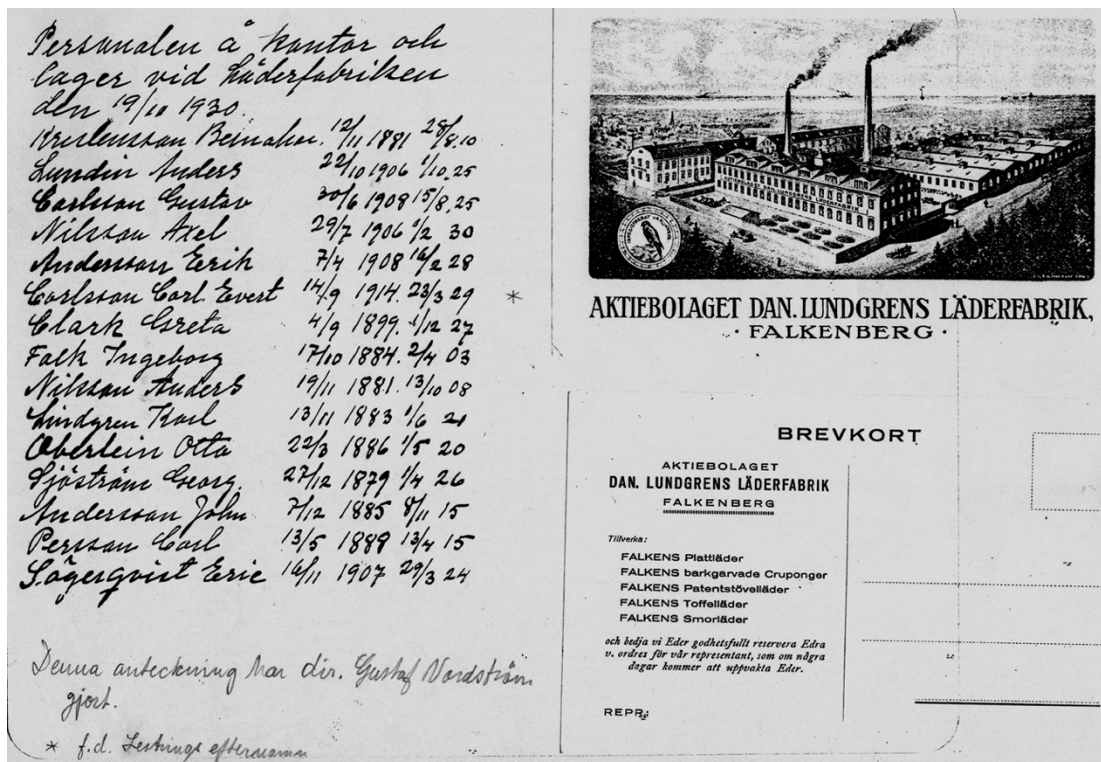 Personalen å kontor och
lager vid Läderfabriken
den 19/10 1930.
12/11 1881 28/8.10
Lundin Anders 22/10 1906 1/10.25
Carlsson Gustav 30/6 1908 15/8.25
Nilsson Axel 29/7 1906 1/2 30
Andersson Eerik 7/4 1908 16/2 28
Carlsson Carl. Evert 14/9 1914. 23/3 29 *
Clark Greta 4/9 1899. 1/12 27
Falk Ingeborg 17/10 1884. 2/4 03
Nilsson Anders 19/11 1881. 13/10 08
Lindgren Karl 13/11 1883 1/6 21
Oberlein Otto 22/3 1886 1/5 20
Sjöström Georg. 27/12 1879 1/4 26
Andersson John 7/12 1885 8/11 15
Persson Carl 13/5 1889 13/4 15
Eric 16/11 1907 29/3 24
Denna anteckning har dir. Gustaf Nordström
gjort.
* f.d. efternamn
AKTIEBOLAGET DAN. LUNDGRENS LÄDERFABRIK
AKTIEBOLAGET DAN. LUNDGRENS LÄDERFABRIK,
· FALKENBERG ·
BREVKORT
AKTIEBOLAGET
DAN. LUNDGRENS LÄDERFABRIK
FALKENBERG
Tillverka:
FALKENS Plattläder
FALKENS barkgarvade Cruponger
FALKENS Patentstövelläder
FALKENS Toffelläder
FALKENS Smorläder
och bedja vi Eder godhetsfullt reservera Edra
v. ordres för vår representant, som om några
dagar kommer att uppvakta Eder.
REPR: